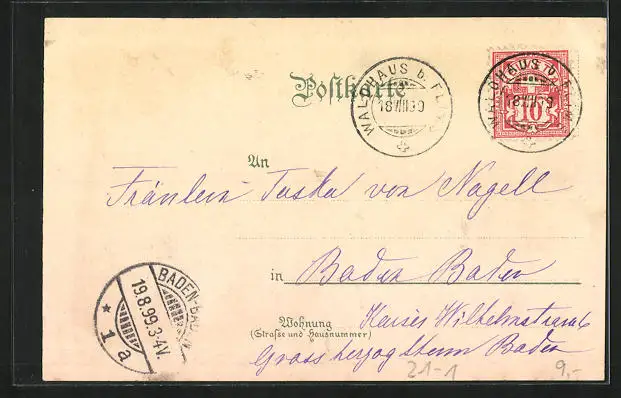 Postkarte
WALDHAUS b. FLIMS
18 VIII 99
WALDHAUS b. FLIMS
18 VIII 99
10
An
Fräulein Toska von Nagell
in Baden Baden
Wohnung Kaiser Wilhelmstrasse
(Straße und Hausnummer)
Grossherzogthum Baden
BADEN-BADEN
19.8.99.3-4V.
* 1a
21-1
9,-